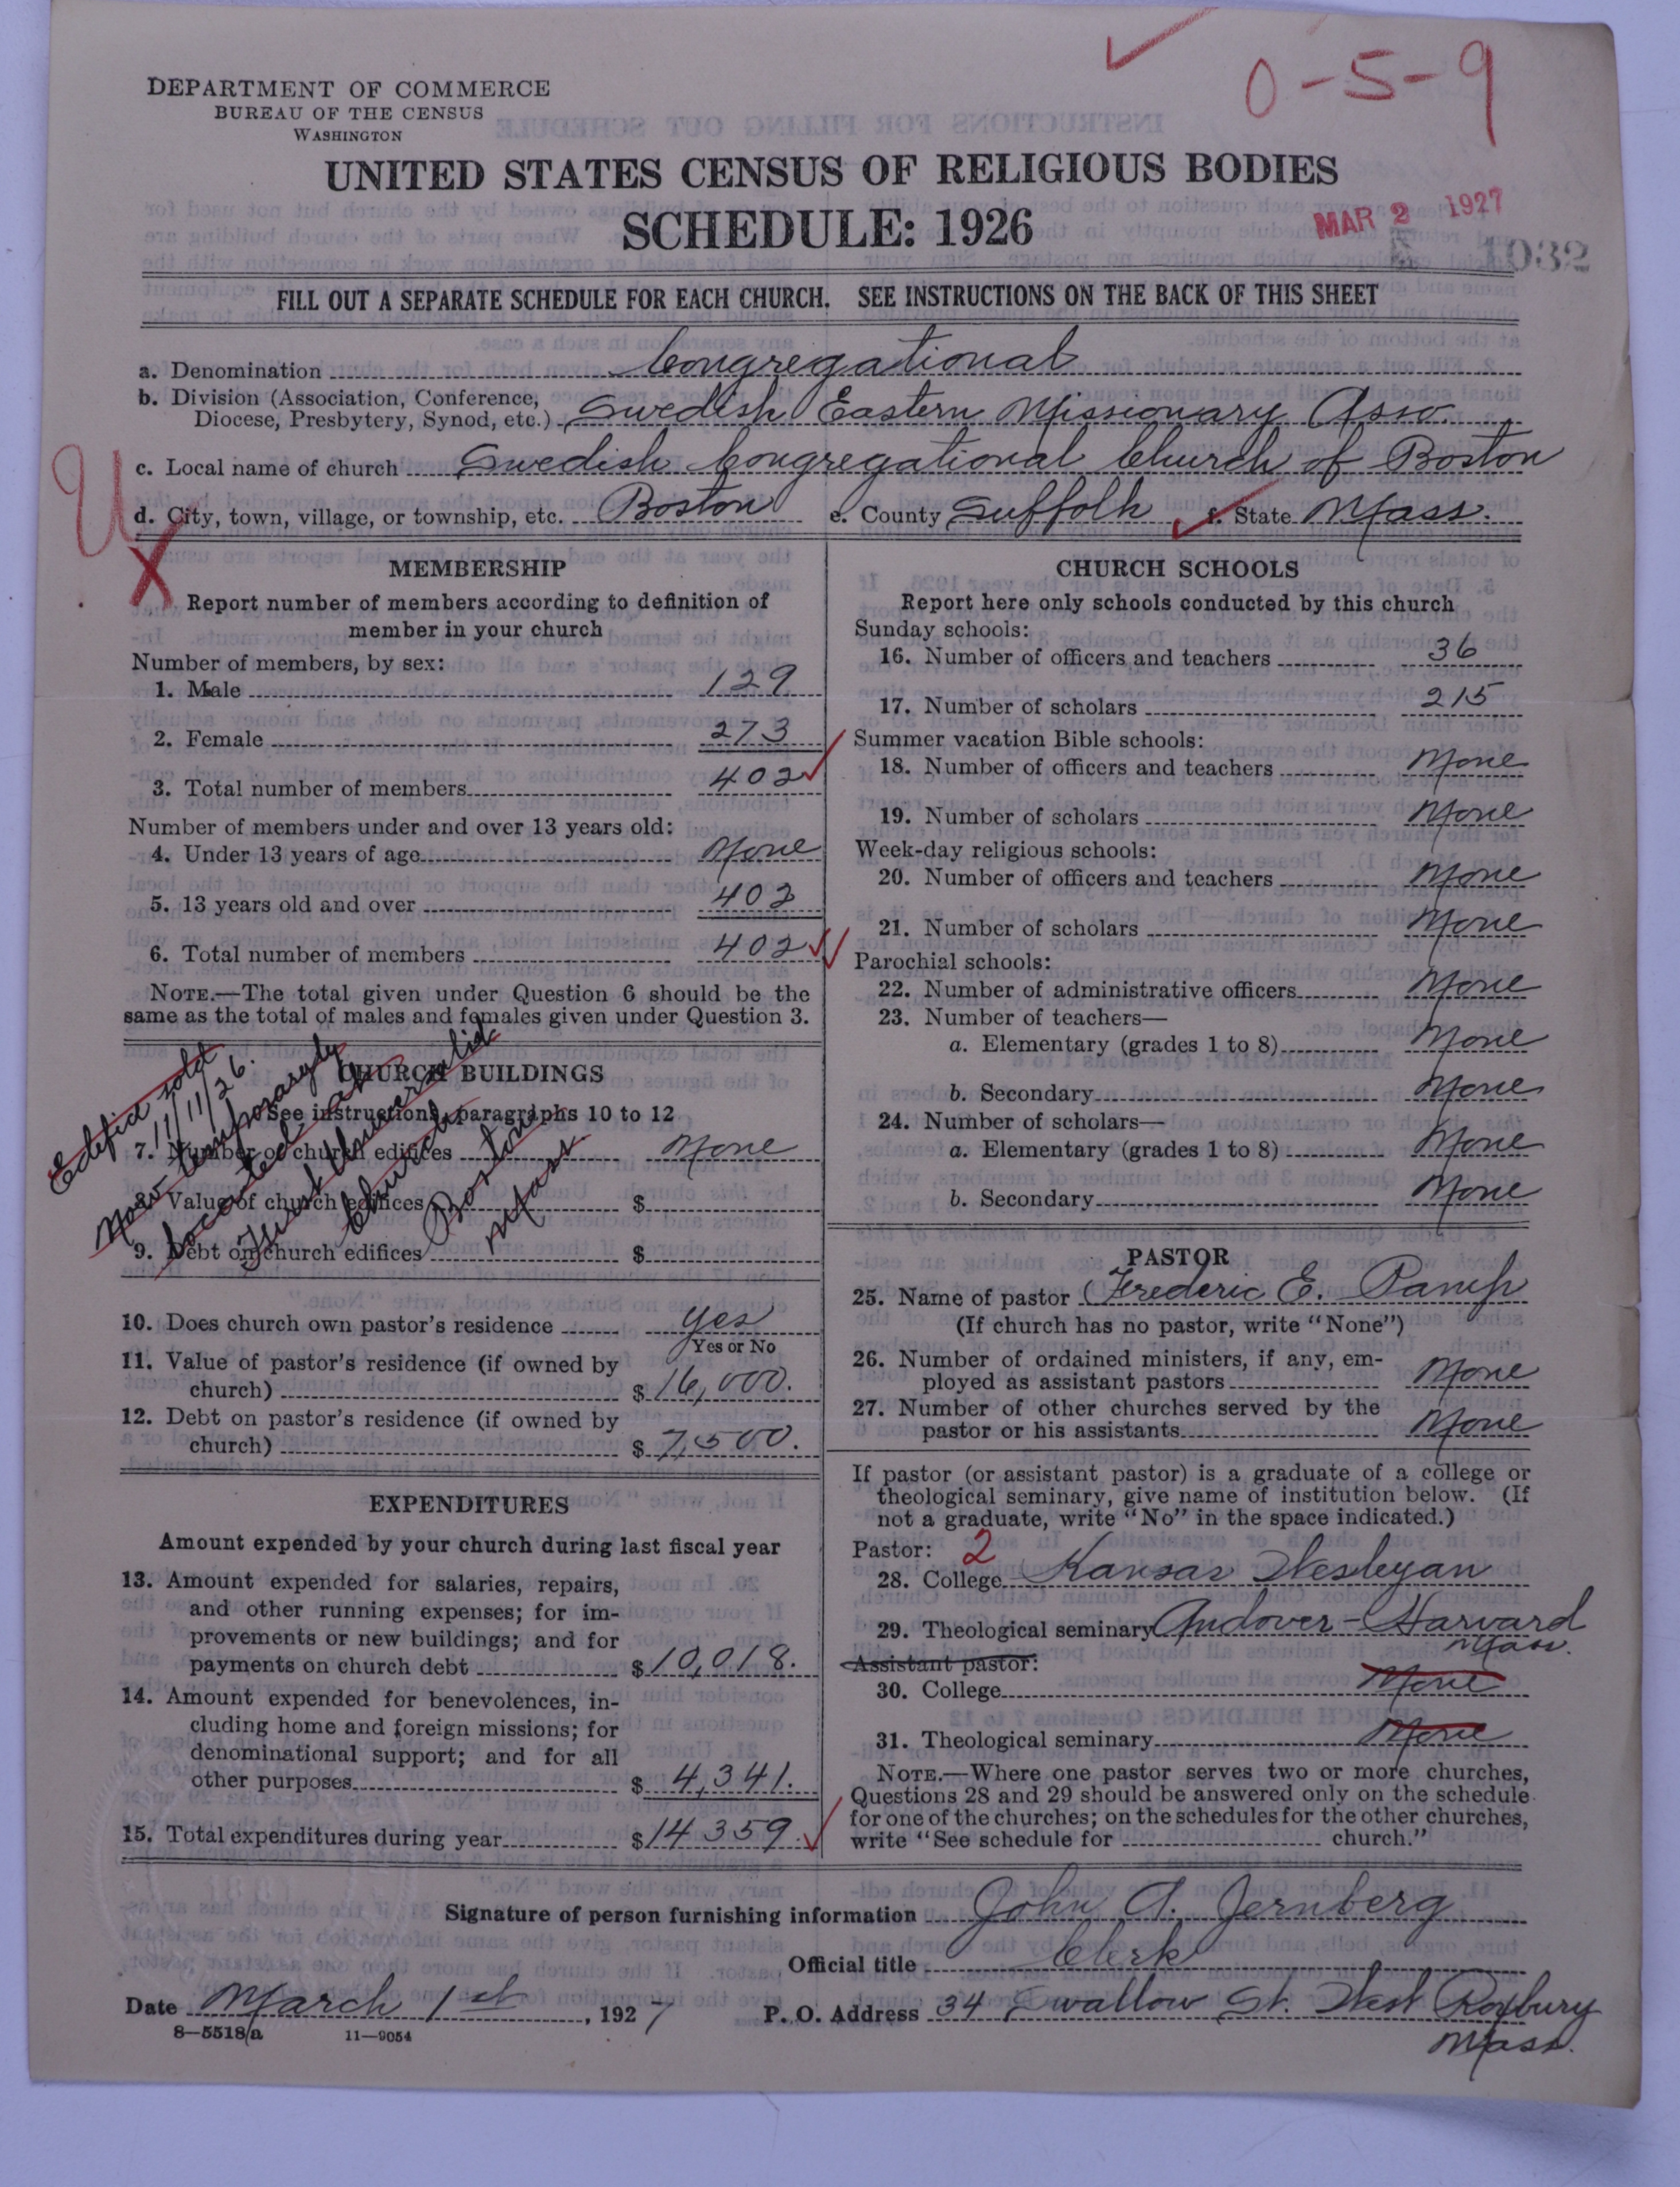 0-5-9
DEPARTMENT OF COMMERCE
BUREAU OF THE CENSUS
WASHINGTON
UNITED STATES CENSUS OF RELIGIOUS BODIES
SCHEDULE: 1926
MAR 2 1927
1032
FILL OUT A SEPARATE SCHEDULE FOR EACH CHURCH. SEE INSTRUCTIONS ON THE BACK OF THIS SHEET
a. Denomination Congregational
b. Division (Association, Conference,
Diocese, Presbytery, Synod, etc.) Swedish Eastern Missionary Asso.
c. Local name of church Swedish Congregational Church of Boston
d. City, town, village, or township, etc. Boston e. County Suffolk f. State Mass.
U
X
MEMBERSHIP
Report number of members according to definition of
member in your church
Number of members, by sex:
1. Male 129
2. Female 273
3. Total number of members 402
Number of members under and over 13 years old:
4. Under 13 years of age None
5. 13 years old and over 402
6. Total number of members 402
NOTE.—The total given under Question 6 should be the
same as the total of males and females given under Question 3.
CHURCH BUILDINGS
See instructions, paragraphs 10 to 12
7. Number of church edifices None
8. Value of church edifices $
9. Debt on church edifices $
Edifice sold
11/11/26.
Now temporarily
located at
First Universalist
Church
Boston
Mass
10. Does church own pastor's residence Yes
Yes or No
11. Value of pastor's residence (if owned by
church) $ 16,000.
12. Debt on pastor's residence (if owned by
church) $ 7,500.
EXPENDITURES
Amount expended by your church during last fiscal year
13. Amount expended for salaries, repairs,
and other running expenses; for im-
provements or new buildings; and for
payments on church debt $ 10,018.
14. Amount expended for benevolences, in-
cluding home and foreign missions; for
denominational support; and for all
other purposes $ 4,341.
15. Total expenditures during year $ 14359.
CHURCH SCHOOLS
Report here only schools conducted by this church
Sunday schools:
16. Number of officers and teachers 36
17. Number of scholars 215
Summer vacation Bible schools:
18. Number of officers and teachers None
19. Number of scholars None
Week-day religious schools:
20. Number of officers and teachers None
21. Number of scholars None
Parochial schools:
22. Number of administrative officers None
23. Number of teachers—
a. Elementary (grades 1 to 8) None
b. Secondary None
24. Number of scholars—
a. Elementary (grades 1 to 8) None
b. Secondary None
PASTOR
25. Name of pastor Frederic E. Pamp
(If church has no pastor, write "None")
26. Number of ordained ministers, if any, em-
ployed as assistant pastors None
27. Number of other churches served by the
pastor or his assistants None
If pastor (or assistant pastor) is a graduate of a college or
theological seminary, give name of institution below. (If
not a graduate, write "No" in the space indicated.)
Pastor: 2
28. College Kansas Wesleyan
29. Theological seminary Andover-Harvard
Mass.
Assistant pastor:
30. College None
31. Theological seminary None
NOTE.—Where one pastor serves two or more churches,
Questions 28 and 29 should be answered only on the schedule
for one of the churches; on the schedules for the other churches,
write "See schedule for church."
Signature of person furnishing information John A. Jernberg
Official title Clerk
Date March 1st, 1927 P. O. Address 34 Swallow St. West Roxbury
Mass.
8—5518a 11—9054